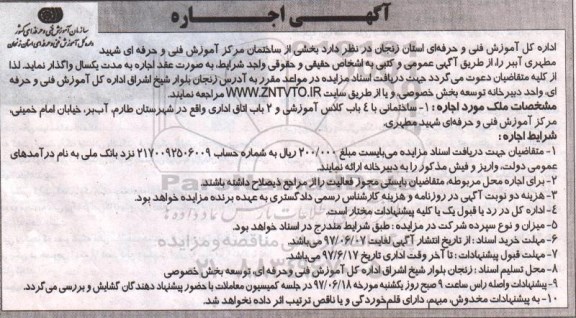 آگهی اجاره
سازمان آموزش فنی و حرفه‌ای کشور
اداره کل آموزش فنی و حرفه‌ای استان زنجان
اداره کل آموزش فنی و حرفه‌ای استان زنجان در نظر دارد بخشی از ساختمان مرکز آموزش فنی و حرفه ای شهید
مطهری آببر را، از طریق آگهی عمومی و کتبی به اشخاص حقیقی و حقوقی واجد شرایط، به صورت عقد اجاره به مدت یکسال واگذار نماید. لذا
از کلیه متقاضیان دعوت می‌گردد جهت دریافت اسناد مزایده در مواعد مقرر به آدرس زنجان بلوار شیخ اشراق اداره کل آموزش فنی و حرفه
ای، واحد دبیرخانه توسعه بخش خصوصی، و یا از طریق سایت WWW.ZNTVTO.IR مراجعه نمایند.
مشخصات ملک مورد اجاره: ۱- ساختمانی با ٤ باب کلاس آموزشی و ۲ باب اتاق اداری واقع در شهرستان طارم، آب‌بر، خیابان امام خمینی،
مرکز آموزش فنی و حرفه‌ای شهید مطهری.
شرایط اجاره:
۱- متقاضیان جهت دریافت اسناد مزایده می‌بایست مبلغ ۲۰۰/۰۰۰ ریال به شماره حساب ۲۱۷۰۰۹۲۵۰۶۰۰۹ نزد بانک ملی به نام درآمدهای
عمومی دولت، واریز و فیش مذکور را به دبیرخانه ارائه نمایند.
۲- برای اجاره محل مربوطه، متقاضیان بایستی مجوز فعالیت را از مراجع ذیصلاح داشته باشند.
۳- هزینه دو نوبت آگهی در روزنامه و هزینه کارشناس رسمی دادگستری به عهده برنده مزایده خواهد بود.
٤- اداره کل در رد یا قبول یک یا کلیه پیشنهادات مختار است.
۵- میزان و نوع سپرده شرکت در مزایده: طبق شرایط مندرج در اسناد خواهد بود.
۶- مهلت خرید اسناد: از تاریخ انتشار آگهی لغایت ۹۷/۰۶/۰۷ می‌باشد.
۷- مهلت قبول پیشنهادات: تا آخر وقت اداری تاریخ ۹۷/۶/۱۷ می‌باشد.
۸- محل تسلیم اسناد: زنجان بلوار شیخ اشراق اداره کل آموزش فنی و حرفه ای، توسعه بخش خصوصی
۹- پیشنهادات واصله راس ساعت ۹ صبح روز یکشنبه مورخه ۹۷/۰۶/۱۸ در جلسه کمیسیون معاملات با حضور پیشنهاد دهندگان گشایش و بررسی می‌گردد.
۱۰- به پیشنهادات مخدوش، مبهم، دارای قلم‌خوردگی و یا ناقص ترتیب اثر داده نخواهد شد.